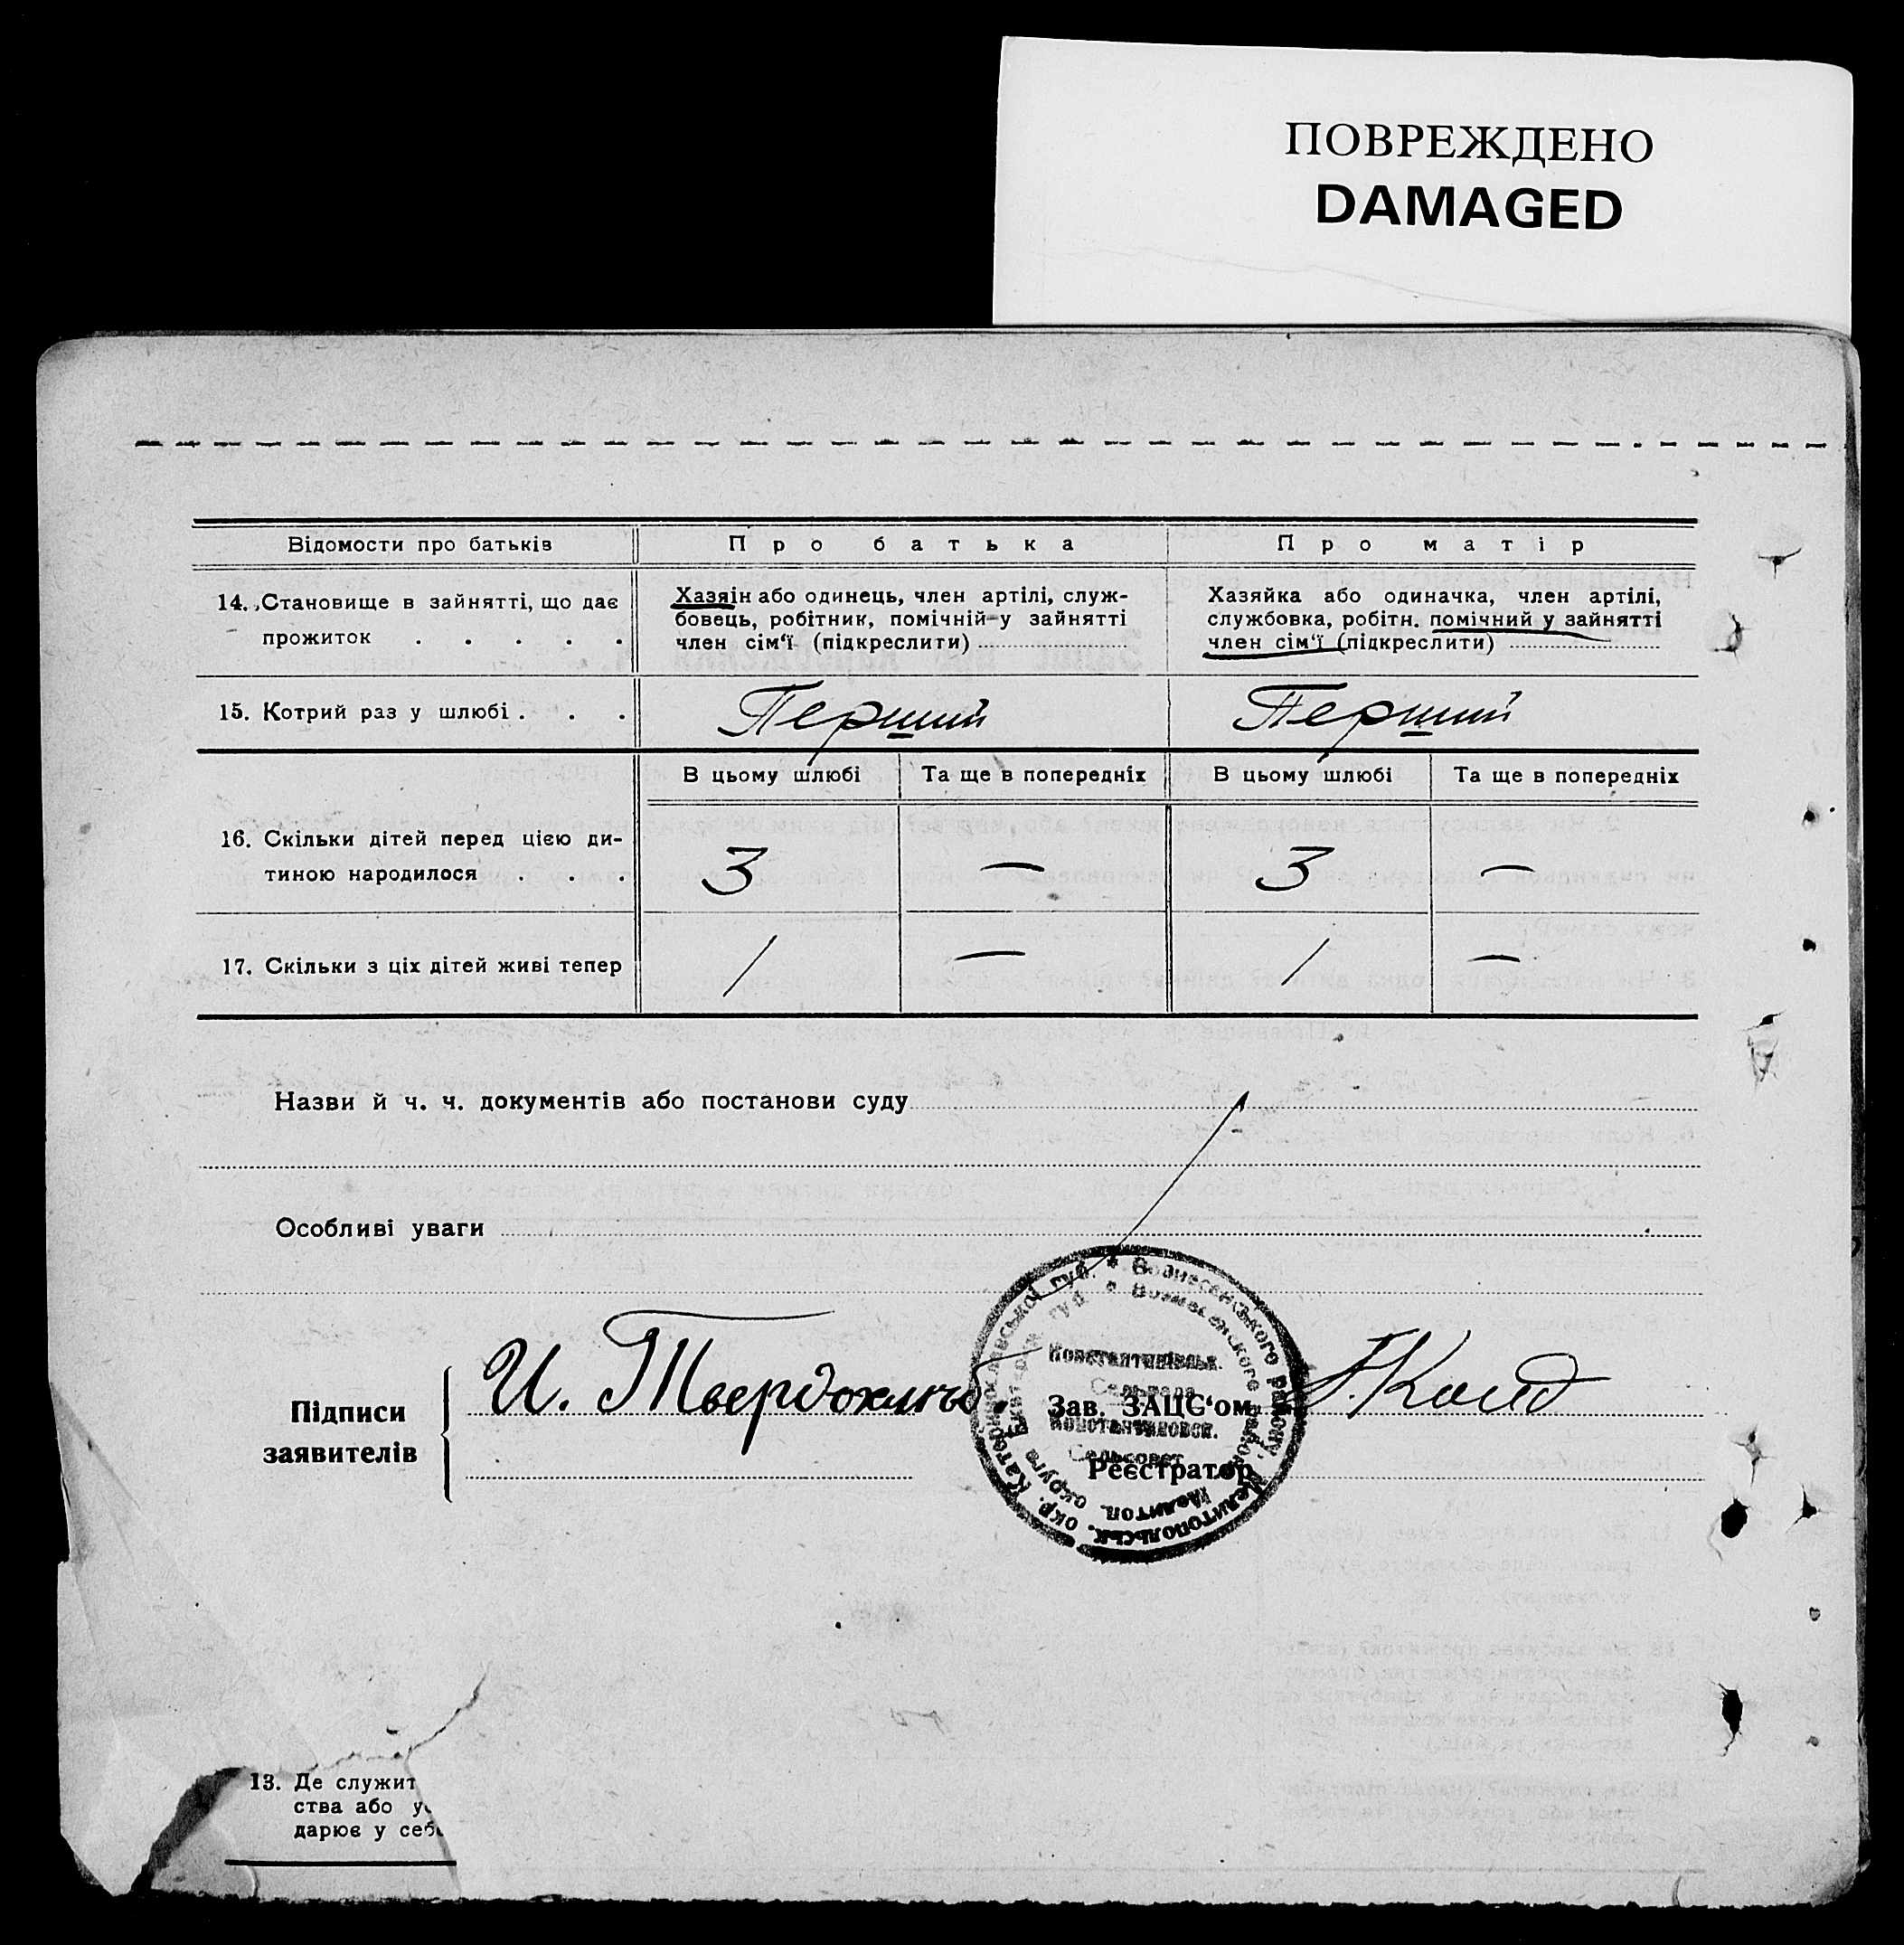 ПОВРЕЖДЕНО
DAMAGED
Відомости про батьків
Про батька
Про матір
14. Становище в зайнятті, що дає
прожиток . . . . .
Хазяін або одинець, член артілі, служ-
бовець, робітник, помічній у зайнятті
член сім'ї (підкреслити)
Хазяйка або одиначка, член артілі,
службовка, робітн. помічний у зайнятті
член сім'ї (підкреслити)
15. Котрий раз у шлюбі . . .
Перший
Перший
В цьому шлюбі
Та ще в попередніх
В цьому шлюбі
Та ще в попередніх
16. Скільки дітей перед цією ди-
тиною народилося . . .
3 — 3 —
17. Скільки з ціх дітей живі тепер
1 — 1 —
Назви й ч. ч. документів або постанови суду
Особливі уваги
Підписи
заявителів
И. Твердохлиб.
Зав. ЗАЦС'ом
Реєстратор
Вознесенського району, Мелитопольськ. окр. Катеринославської губ.
Константинівськ.
Сельрада
Константиновск.
Сельсовет
13. Де служит
ства або
дарює у себ